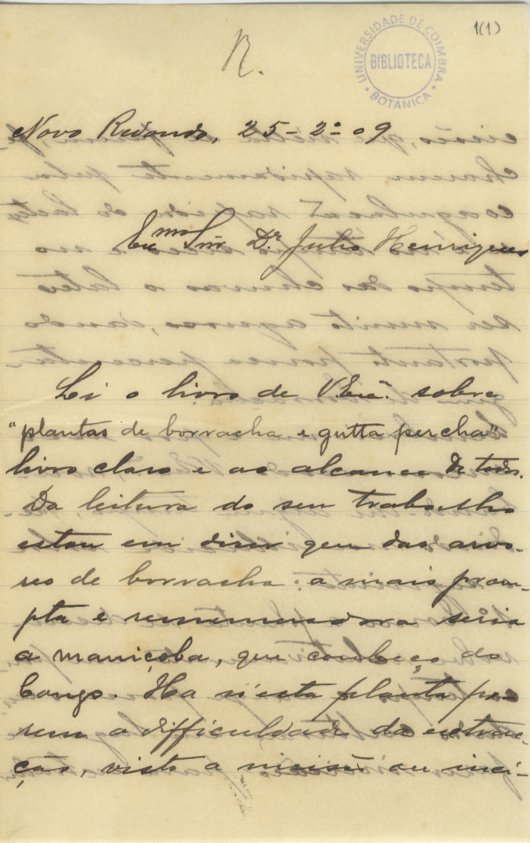 R.
UNIVERSIDADE DE COIMBRA
BIBLIOTECA
BOTANICA
1(1)
Novo Redondo, 25-2º-09
Exmo Snr Dr Julio Henriques
Li o livro de V Exª. sobre
"plantas de borracha e gutta percha"
livro claro e ao alcance de todos.
Da leitura do seu trabalho
estou em dizer que das arvo-
res de borracha: a mais prom-
pta e remuneradora seria
a maniçoba, que conheço do
Congo. Ha n'esta planta po-
rem a difficuldade da extrac-
ção, visto a incisão ou inci-